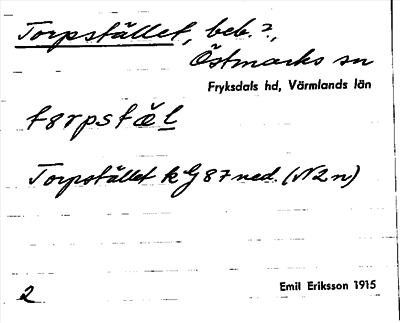 Torpstället, beb.?,
Östmarks sn
Fryksdals hd, Värmlands län
tɵrpstæl
Torpstället kG 87 ned. (N2n)
2
Emil Eriksson 1915